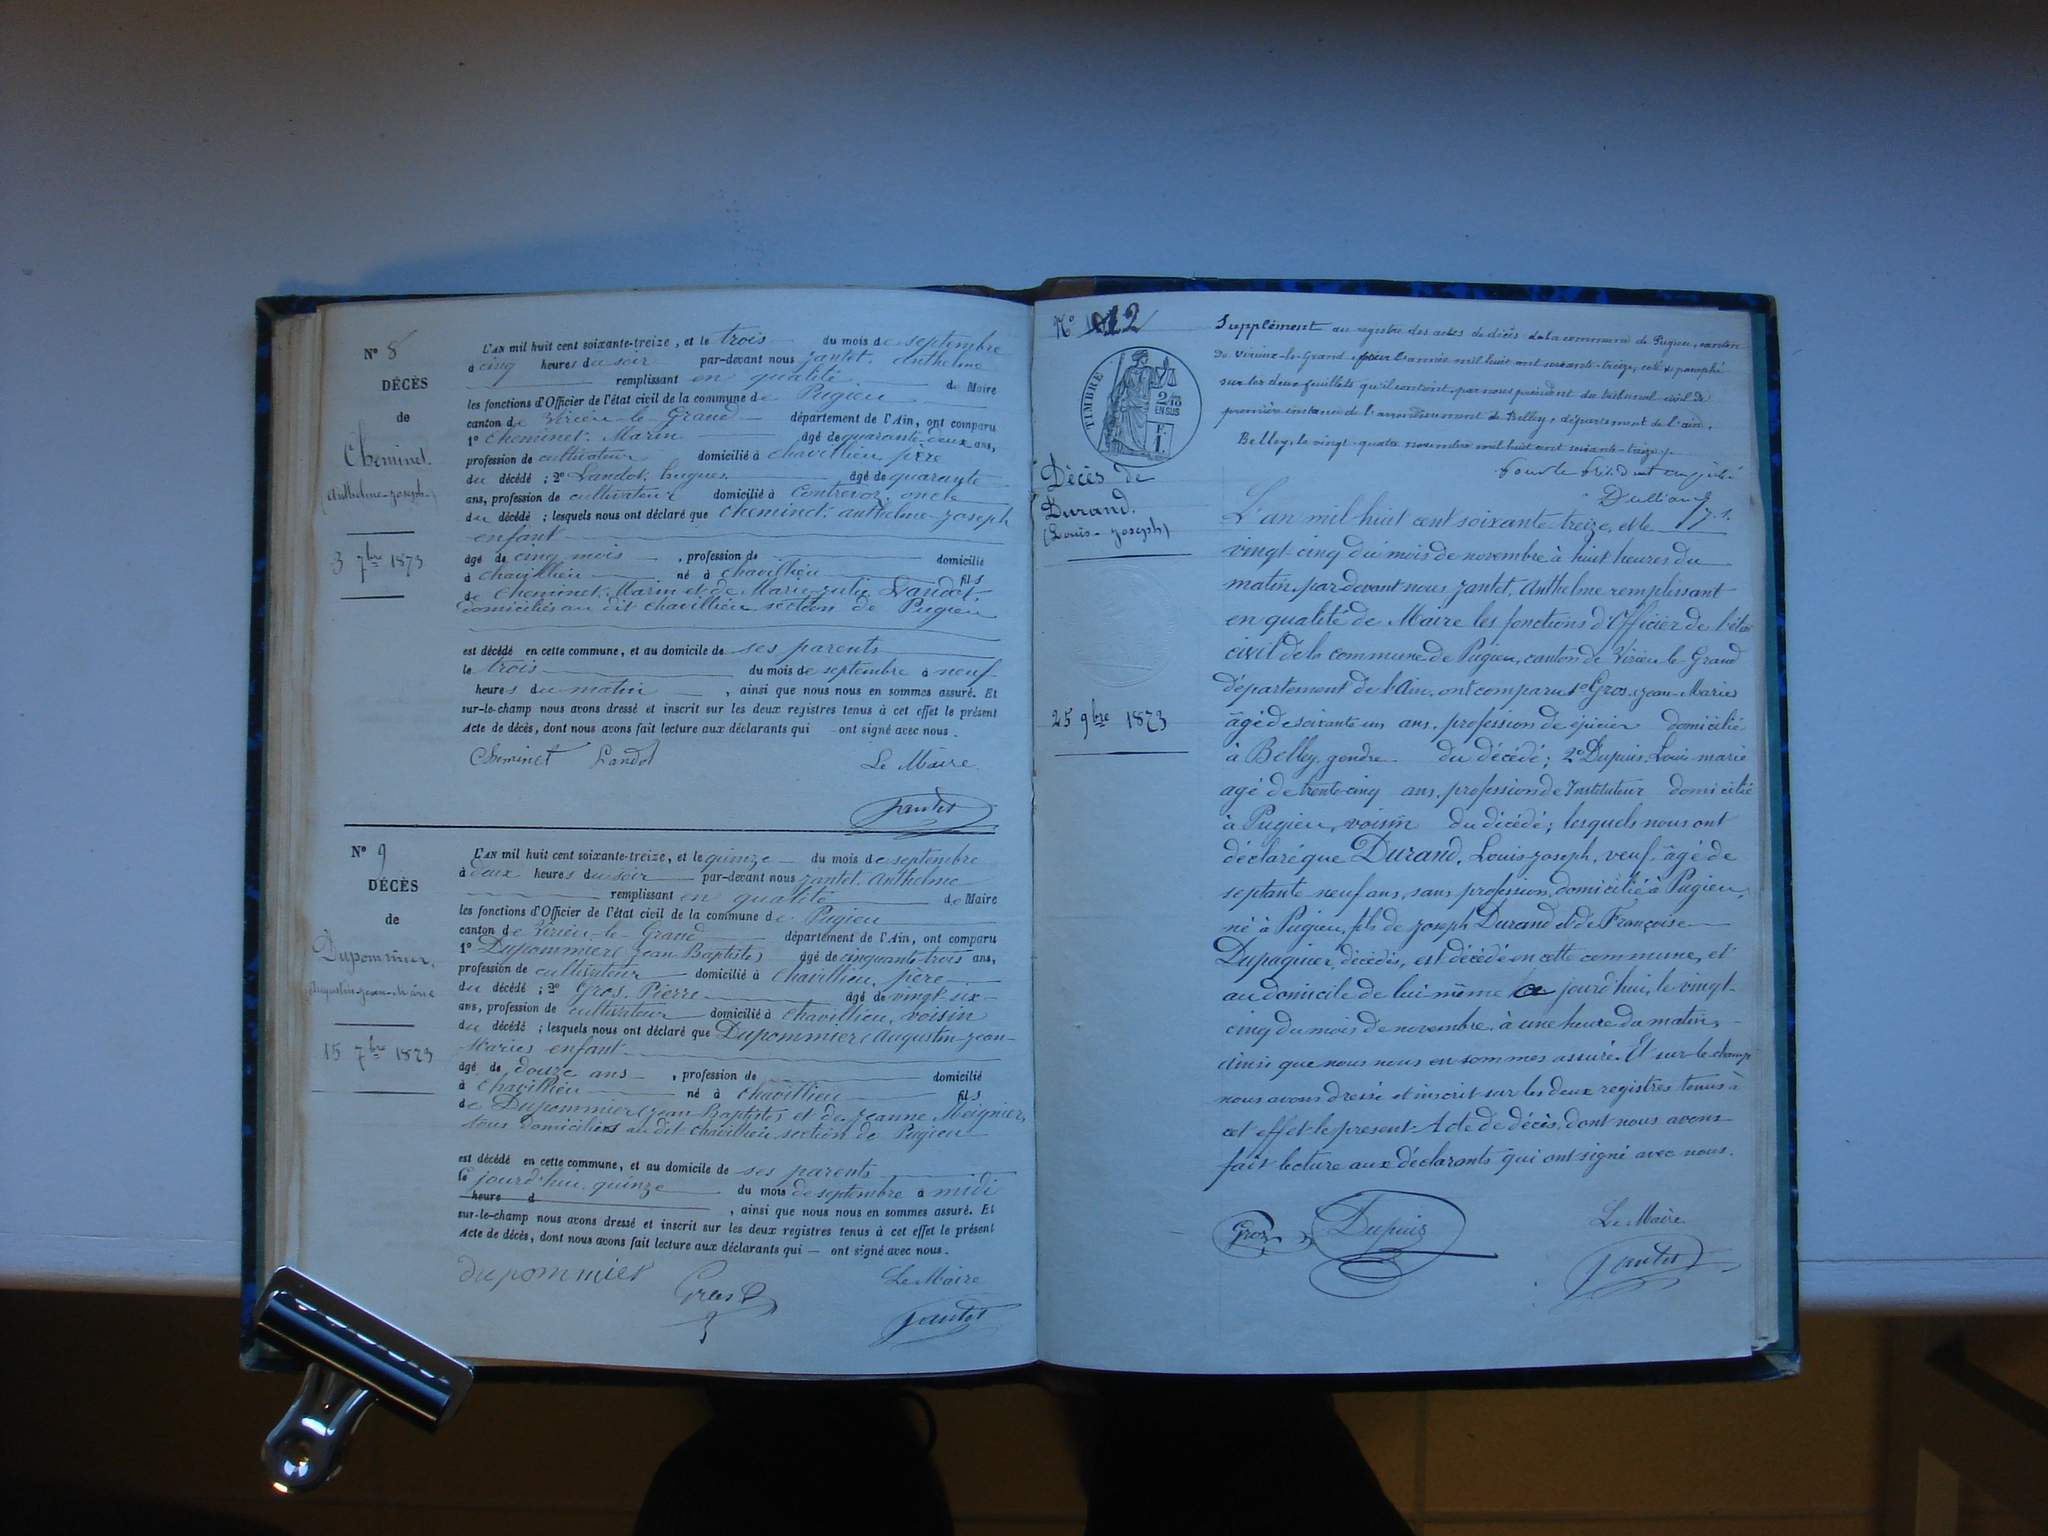 N° 8
DÉCÈS
de
Cheminet.
(Anthelme-Joseph)
3 7bre 1873
L'AN mil huit cent soixante-treize, et le trois du mois de septembre
à cinq heures du soir par-devant nous Jantet, Anthelme
remplissant en qualité de Maire
les fonctions d'Officier de l'état civil de la commune de Pugieu
canton de Virieu-le-Grand département de l'Ain, ont comparu
1° Cheminet, Marin âgé de quarante-deux ans,
profession de cultivateur domicilié à Chavillieu, père
du décédé ; 2° Landot, hugues, âgé de quarante
ans, profession de cultivateur domicilié à Contrevoz, oncle
du décédé ; lesquels nous ont déclaré que Cheminet, anthelme-Joseph
enfant
âgé de cinq mois , profession de domicilié
à Chavillieu né à Chavillieu fils
de Cheminet, Marin et de Marie-Julie Landot,
domiciliés au dit Chavillieu section de Pugieu
est décédé en cette commune, et au domicile de ses parents
le trois du mois de septembre à neuf
heures du matin , ainsi que nous nous en sommes assuré. Et
sur-le-champ nous avons dressé et inscrit sur les deux registres tenus à cet effet le présent
Acte de décès, dont nous avons fait lecture aux déclarants qui ont signé avec nous.
Cheminet Landot Le Maire
Jantet
N° 9
DÉCÈS
de
Dupommier,
Augustin-Jean-Marie
15 7bre 1873
L'AN mil huit cent soixante-treize, et le quinze du mois de septembre
à deux heures du soir par-devant nous Jantet, Anthelme
remplissant en qualité de Maire
les fonctions d'Officier de l'état civil de la commune de Pugieu
canton de Virieu-le-Grand département de l'Ain, ont comparu
1° Dupommier (Jean Baptiste) âgé de cinquante-trois ans,
profession de cultivateur domicilié à Chavillieu, père
du décédé ; 2° Gros, Pierre âgé de vingt-six
ans, profession de cultivateur domicilié à Chavillieu, voisin
du décédé ; lesquels nous ont déclaré que Dupommier (Augustin-Jean-
Marie) enfant
âgé de douze ans , profession de domicilié
à Chavillieu né à Chavillieu fils
de Dupommier (Jean Baptiste) et de Jeanne Meignier,
tous domiciliés au dit Chavillieu section de Pugieu
est décédé en cette commune, et au domicile de ses parents
Ce jourd'hui quinze du mois de septembre à midi
heure d , ainsi que nous nous en sommes assuré. Et
sur-le-champ nous avons dressé et inscrit sur les deux registres tenus à cet effet le présent
Acte de décès, dont nous avons fait lecture aux déclarants qui — ont signé avec nous.
dupommier Gros P Le Maire
Jantet
N° 12
TIMBRE
2/10
EN SUS
F.
1.
Décès de
Durand.
(Louis-Joseph)
25 9bre 1873
Supplément au registre des actes de décès de la commune de Pugieu, canton
de Virieu-le-Grand, pour l'année mil huit cent soixante-treize, coté & paraphé
sur les deux feuillets qu'il contient, par nous président du tribunal civil de
première instance de l'arrondissement de Belley, département de l'ain.
Belley, le vingt-quatre novembre mil huit cent soixante-treize.
Pour le Président empêché
L'an mil huit cent soixante-treize, et le
vingt-cinq du mois de novembre à huit heures du
matin, par-devant nous Jantet, Anthelme remplissant
en qualité de Maire les fonctions d'Officier de l'état
civil de la commune de Pugieu, canton de Virieu-le-Grand
département de l'Ain, ont comparu 1° Gros, Jean-Marie
âgé de soixante un ans, profession de épicier domicilié
à Belley, gendre du décédé ; 2° Dupuis, Louis-marie
agé de trente-cinq ans, profession de Instituteur domicilié
à Pugieu, voisin du décédé ; lesquels nous ont
déclaré que Durand, Louis-Joseph, veuf, âgé de
septante neuf ans, sans profession, domicilié à Pugieu,
né à Pugieu, fils de Joseph Durand et de Françoise
Dupaquier, décédés, est décédé en cette commune, et
au domicile de lui-même ce jourd'hui, le vingt-
cinq du mois de novembre, à une heure du matin,
ainsi que nous nous en sommes assuré. Et sur-le-champ
nous avons dressé et inscrit sur les deux registres tenus à
cet effet le présent Acte de décès, dont nous avons
fait lecture aux déclarants qui ont signé avec nous.
Gros Dupuis Le Maire
Jantet